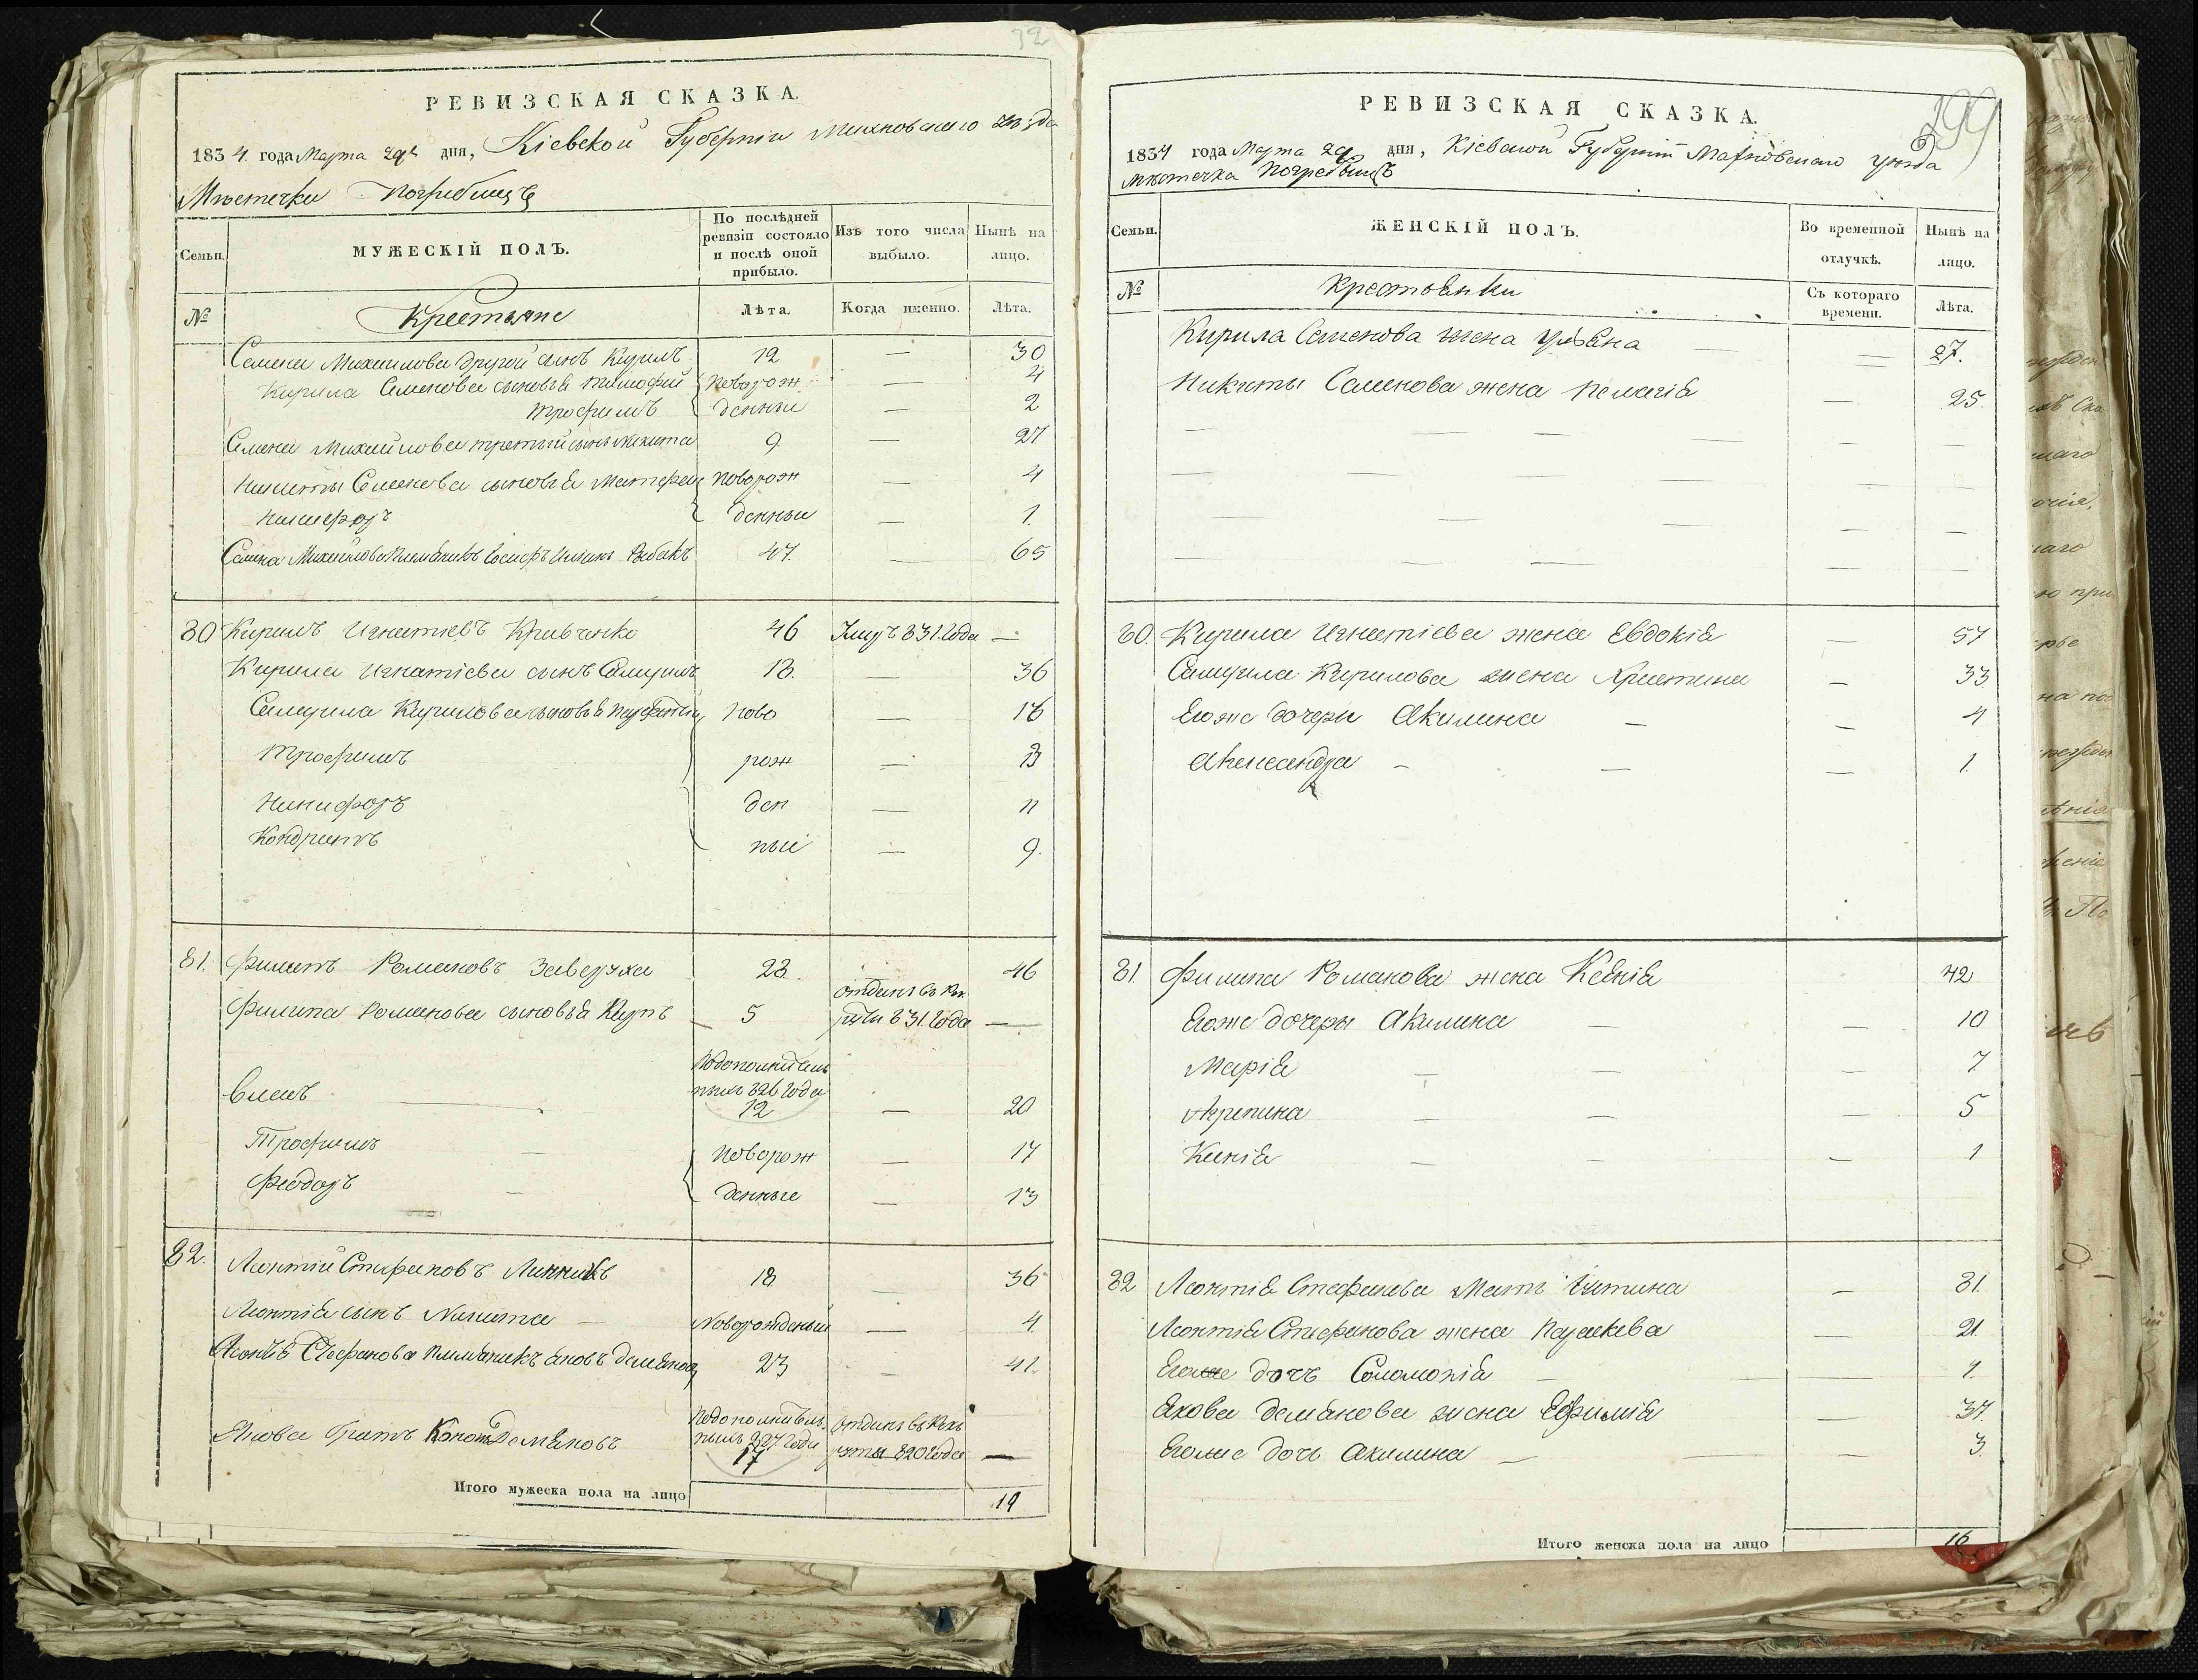 32
РЕВИЗСКАЯ СКАЗКА.
1834 года Марта 29 дня, Кіевской Губерніи Махновскаго уѣзда
Мѣстечка Погребищъ
Семьи.
МУЖЕСКІЙ ПОЛЪ.
По послѣдней ревизіи состояло и послѣ оной прибыло.
Изъ того числа выбыло.
Нынѣ на лицо.
№
Крестьяне
Лѣта.
Когда именно.
Лѣта.
Семена Михайлова другой сынъ Кирилъ 12 — 30
Кирила Семенова сыновья Тимофей Новорож — 4
Трофимъ денныи — 2
Семена Михайлова третий сынъ Никита 9. — 27
Никиты Семенова сыновья Матфей Новорож — 4
Никифоръ денныи — 1.
Семена Михайлова племянникъ Іосифъ Рыбакъ 47. — 65
80 Кирилъ Игнатіевъ Кривченко 46 Умръ 831 года —
Кирила Игнатіева сынъ Самуилъ 18. — 36
Самуила Кирилова сыновья Ново — 16
Трофимъ рож — 13
Никифоръ ден — 11
Кондратъ ныи — 9.
81. Филипъ Романовъ Заверуха 28. 46
Филипа Романова сыновья Карпъ 5 отданъ въ Рек
руты 831 года —
Власъ — Подополнитель
нымъ 826 года
12 — 20
Трофимъ — Новорож — 17
Феодоръ — денные — 13
82. Леонтій Стефановъ Линникъ 18 — 36
Леонтія сынъ Никита — Новорожденый — 4.
Леонтія Стефанова племяникъ Яковъ Демяновъ 23 — 41.
Якова братъ Кононъ Демяновъ Подополнитель
нымъ 827 года
17 отданъ въ Рек
руты 829 года —
Итого мужеска пола на лицо 19
299
РЕВИЗСКАЯ СКАЗКА.
1834 года Марта 29 дня, Кіевской Губерніи Махновскаго уѣзда
Мѣстечка Погребищъ
Семьи.
ЖЕНСКІЙ ПОЛЪ.
Во временной отлучкѣ.
Нынѣ на лицо.
№
Крестьянки
Съ котораго времени.
Лѣта.
Кирила Семенова жена Ульяна — 27.
Никиты Семенова жена Пелагія — 25.
80. Кирила Игнатіева жена Евдокія — 57
Самуила Кирилова жена Христина — 33.
Егоже дочери Акилина — — 4
Александра — — — 1.
81. Филипа Романова жена Ксенія 42
Егоже дочеры Акилина — — 10
Марія — — — 7
Агрипина — — — 5
Ксенія — — — 1
82 Леонтія Стефанова Мать — 81.
Леонтія Стефанова жена Параскева — 21.
Егоже дочь Соломонія — — 1.
Якова Демянова жена Ефимія — 37.
Егоже дочь Акилина — — 3.
Итого женска пола на лицо 16